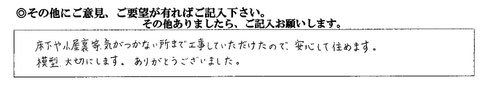 ◎その他にご意見、ご要望が有ればご記入下さい。
その他ありましたら、ご記入お願いします。
床下や小屋裏等、気がつかない所まで工事していただけたので、安心して住めます。
模型、大切にします。ありがとうございました。